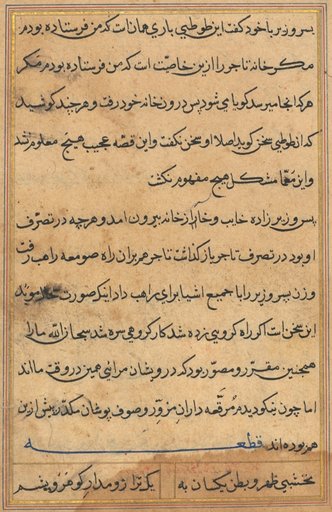 پسر وزیر با خود گفت این طوطی باری همان است که من فرستاده بودم
مگر خانه تاجر را این خاصیت است که من فرستاده بودم مگر
هر که انجا میرسد کویا می شود پس درون خانه خود رفت و هر چند کوشید
که از طوطی سخن کوید اصلا او سخن نکفت و این قصه عجیب هیچ معلوم نشد
و این معما مشکل هیچ مفهوم نکشت
پسر وزیر زاده خایب و خاسر از خانه بیرون امد و هر چه در تصرف
او بود در تصرف تاجر باز کذاشت تاجر هم بران راه صومعه راهب رفت
و زن پسر وزیر را با جمیع اشیا برای راهب داد اینک صورت
این سخن است که راه کرویی زده شد کار کروهی سره شد سبحان الله ما را
همچنین مقرر و مصور بود که درویشان مرائی همین در وقت ما اند
اما چون بنکودیدم مرقعه داران مزور و صوف پوشان مکدر پیش ازین
هم بوده اند قطعه
نخشبی ظهر و بطن یکسان به
یک ترازو مدار کو فروشم